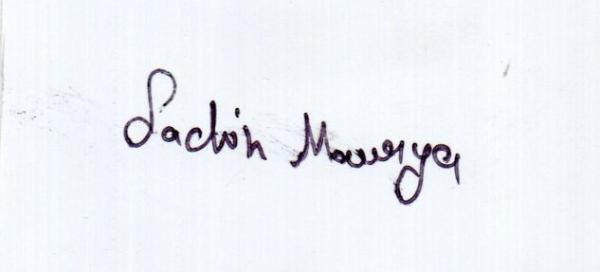 Sachin Mourya